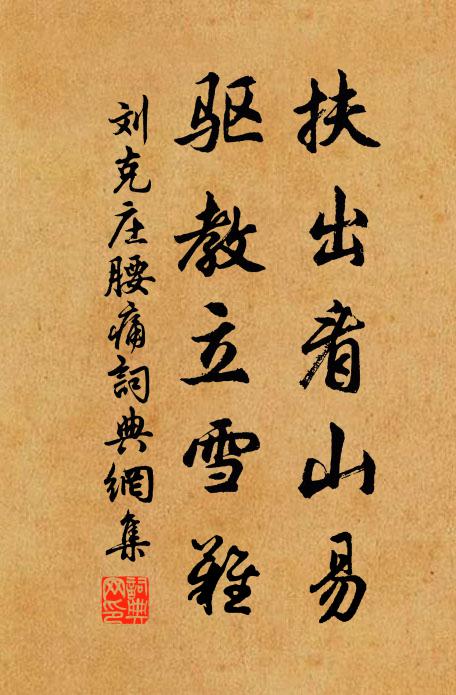 扶出看山易
驱教立雪难
刘克庄腰痛詞典網集
詞典网印